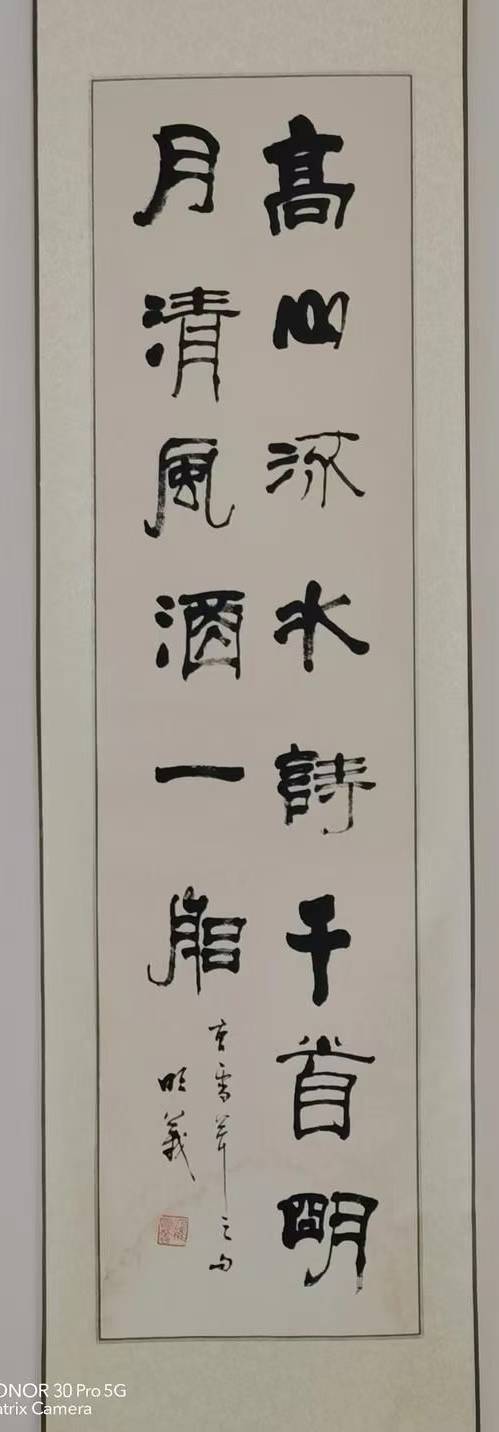 高山流水詩千首明
月清風酒一船
曹雪芹之句
明義
ONOR 30 Pro 5G
atrix Camera